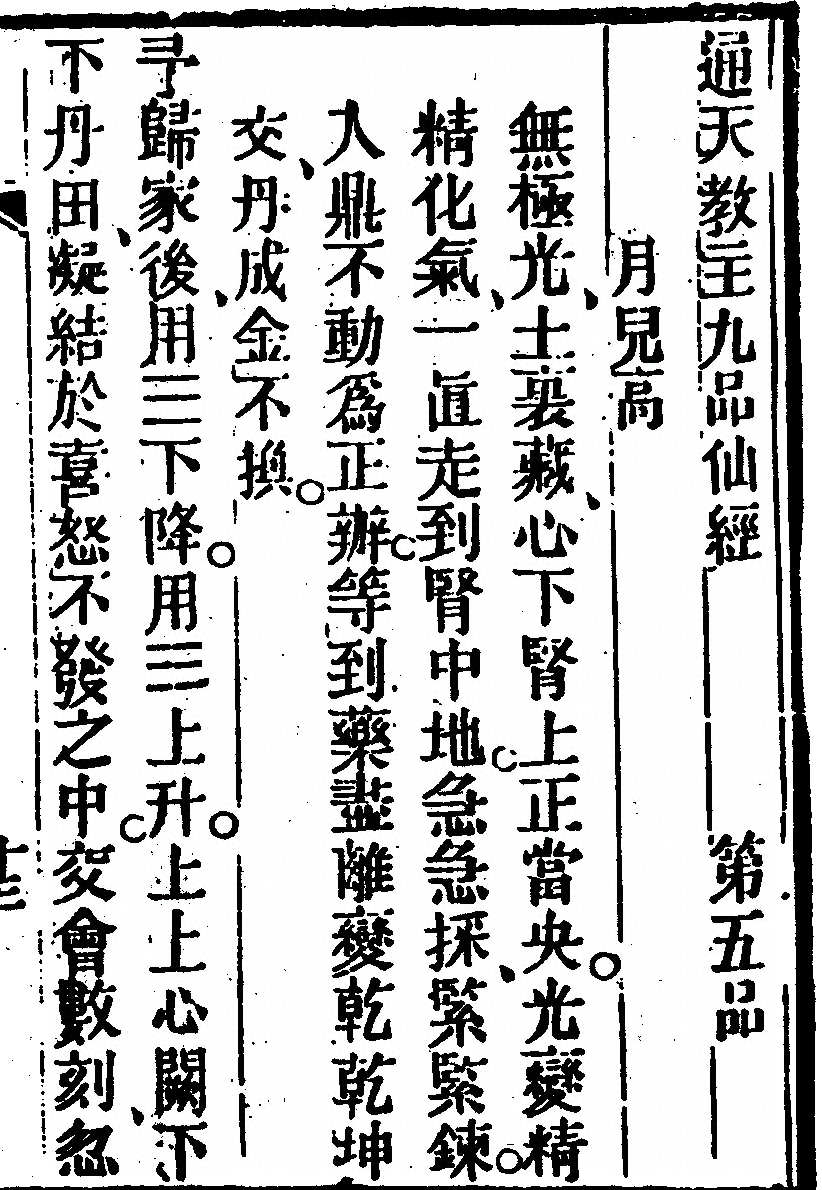 通天教主九品仙經　第五品
月兒高
無極光、士裏藏、心下腎上正當央。光變精
精化氣、一眞走到腎中地。急急採、緊緊鍊。
入鼎不動爲正辦。等到藥盡離變乾乾坤
交、丹成金不換。
寻歸家後、用三下降。用三上升。上上心闕下
下丹田、凝結於喜怒不發之中。交會數刻、忽